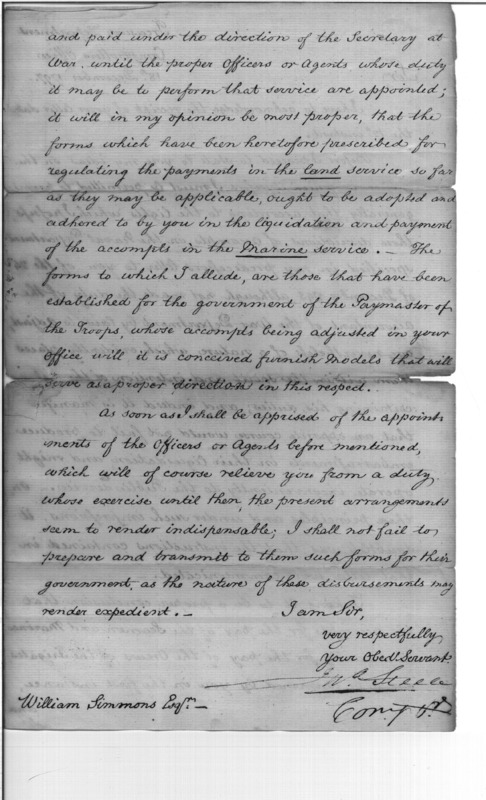 and paid under the direction of the Secretary at
War, until the proper Officers or Agents whose duty
it may be to perform that service are appointed;
it will in my opinion be most proper, that the
forms which have been heretofore prescribed for
regulating the payments in the land service so far
as they may be applicable, ought to be adopted and
adhered to by you in the liquidation and payment
of the accompts in the Marine service. — The
forms to which I allude, are those that have been
established for the government of the Paymaster of
the Troops, whose accompts being adjusted in your
Office will it is conceived furnish Models that will
serve as a proper direction in this respect. —
As soon as I shall be apprised of the appoint
ments of the Officers or Agents before mentioned,
which will of course relieve you from a duty
whose exercise until then, the present arrangements
seem to render indispensable; I shall not fail to
prepare and transmit to them such forms for their
government, as the nature of these disbursements may
render expedient. —
I am Sir,
very respectfully
Your Obedt. Servant
Jno. Steele
Compt. 
William Simmons Esqr. —